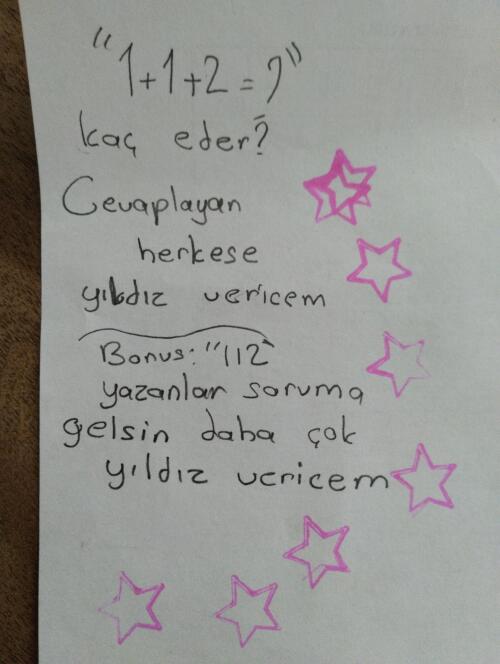 "1+1+2=?"
kaç eder?
Cevaplayan
herkese
yıldız vericem
Bonus: "112
yazanlar soruma
gelsin daha çok
yıldız vericem